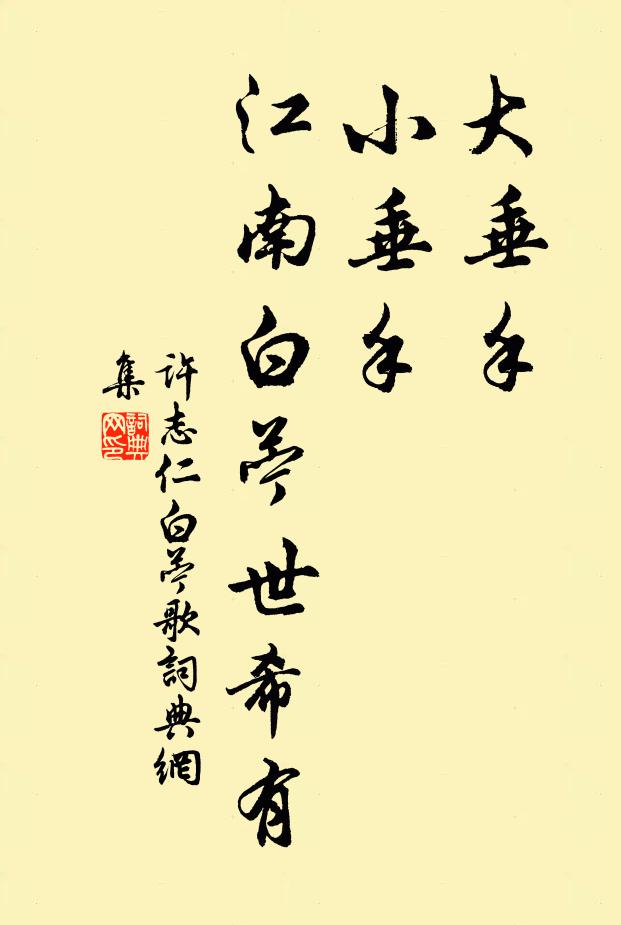 大垂手
小垂手
江南白苎世希有
许志仁白苎歌詞典網
集
詞典网印